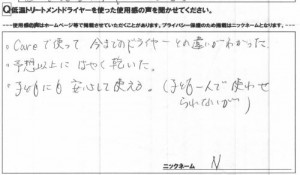 Q低温トリートメントドライヤーを使った使用感の声を聞かせてください。
使用感の声はホームページ等で掲載させていただくことがあります。プライバシー保護のため掲載はニックネームとなります。
・Careで使って 今までのドライヤーとの違いがわかった.
・予想以上に はやく乾いた.
・子供にも 安心して使える. (子供一人で使わせ
られないが)
ニックネーム N